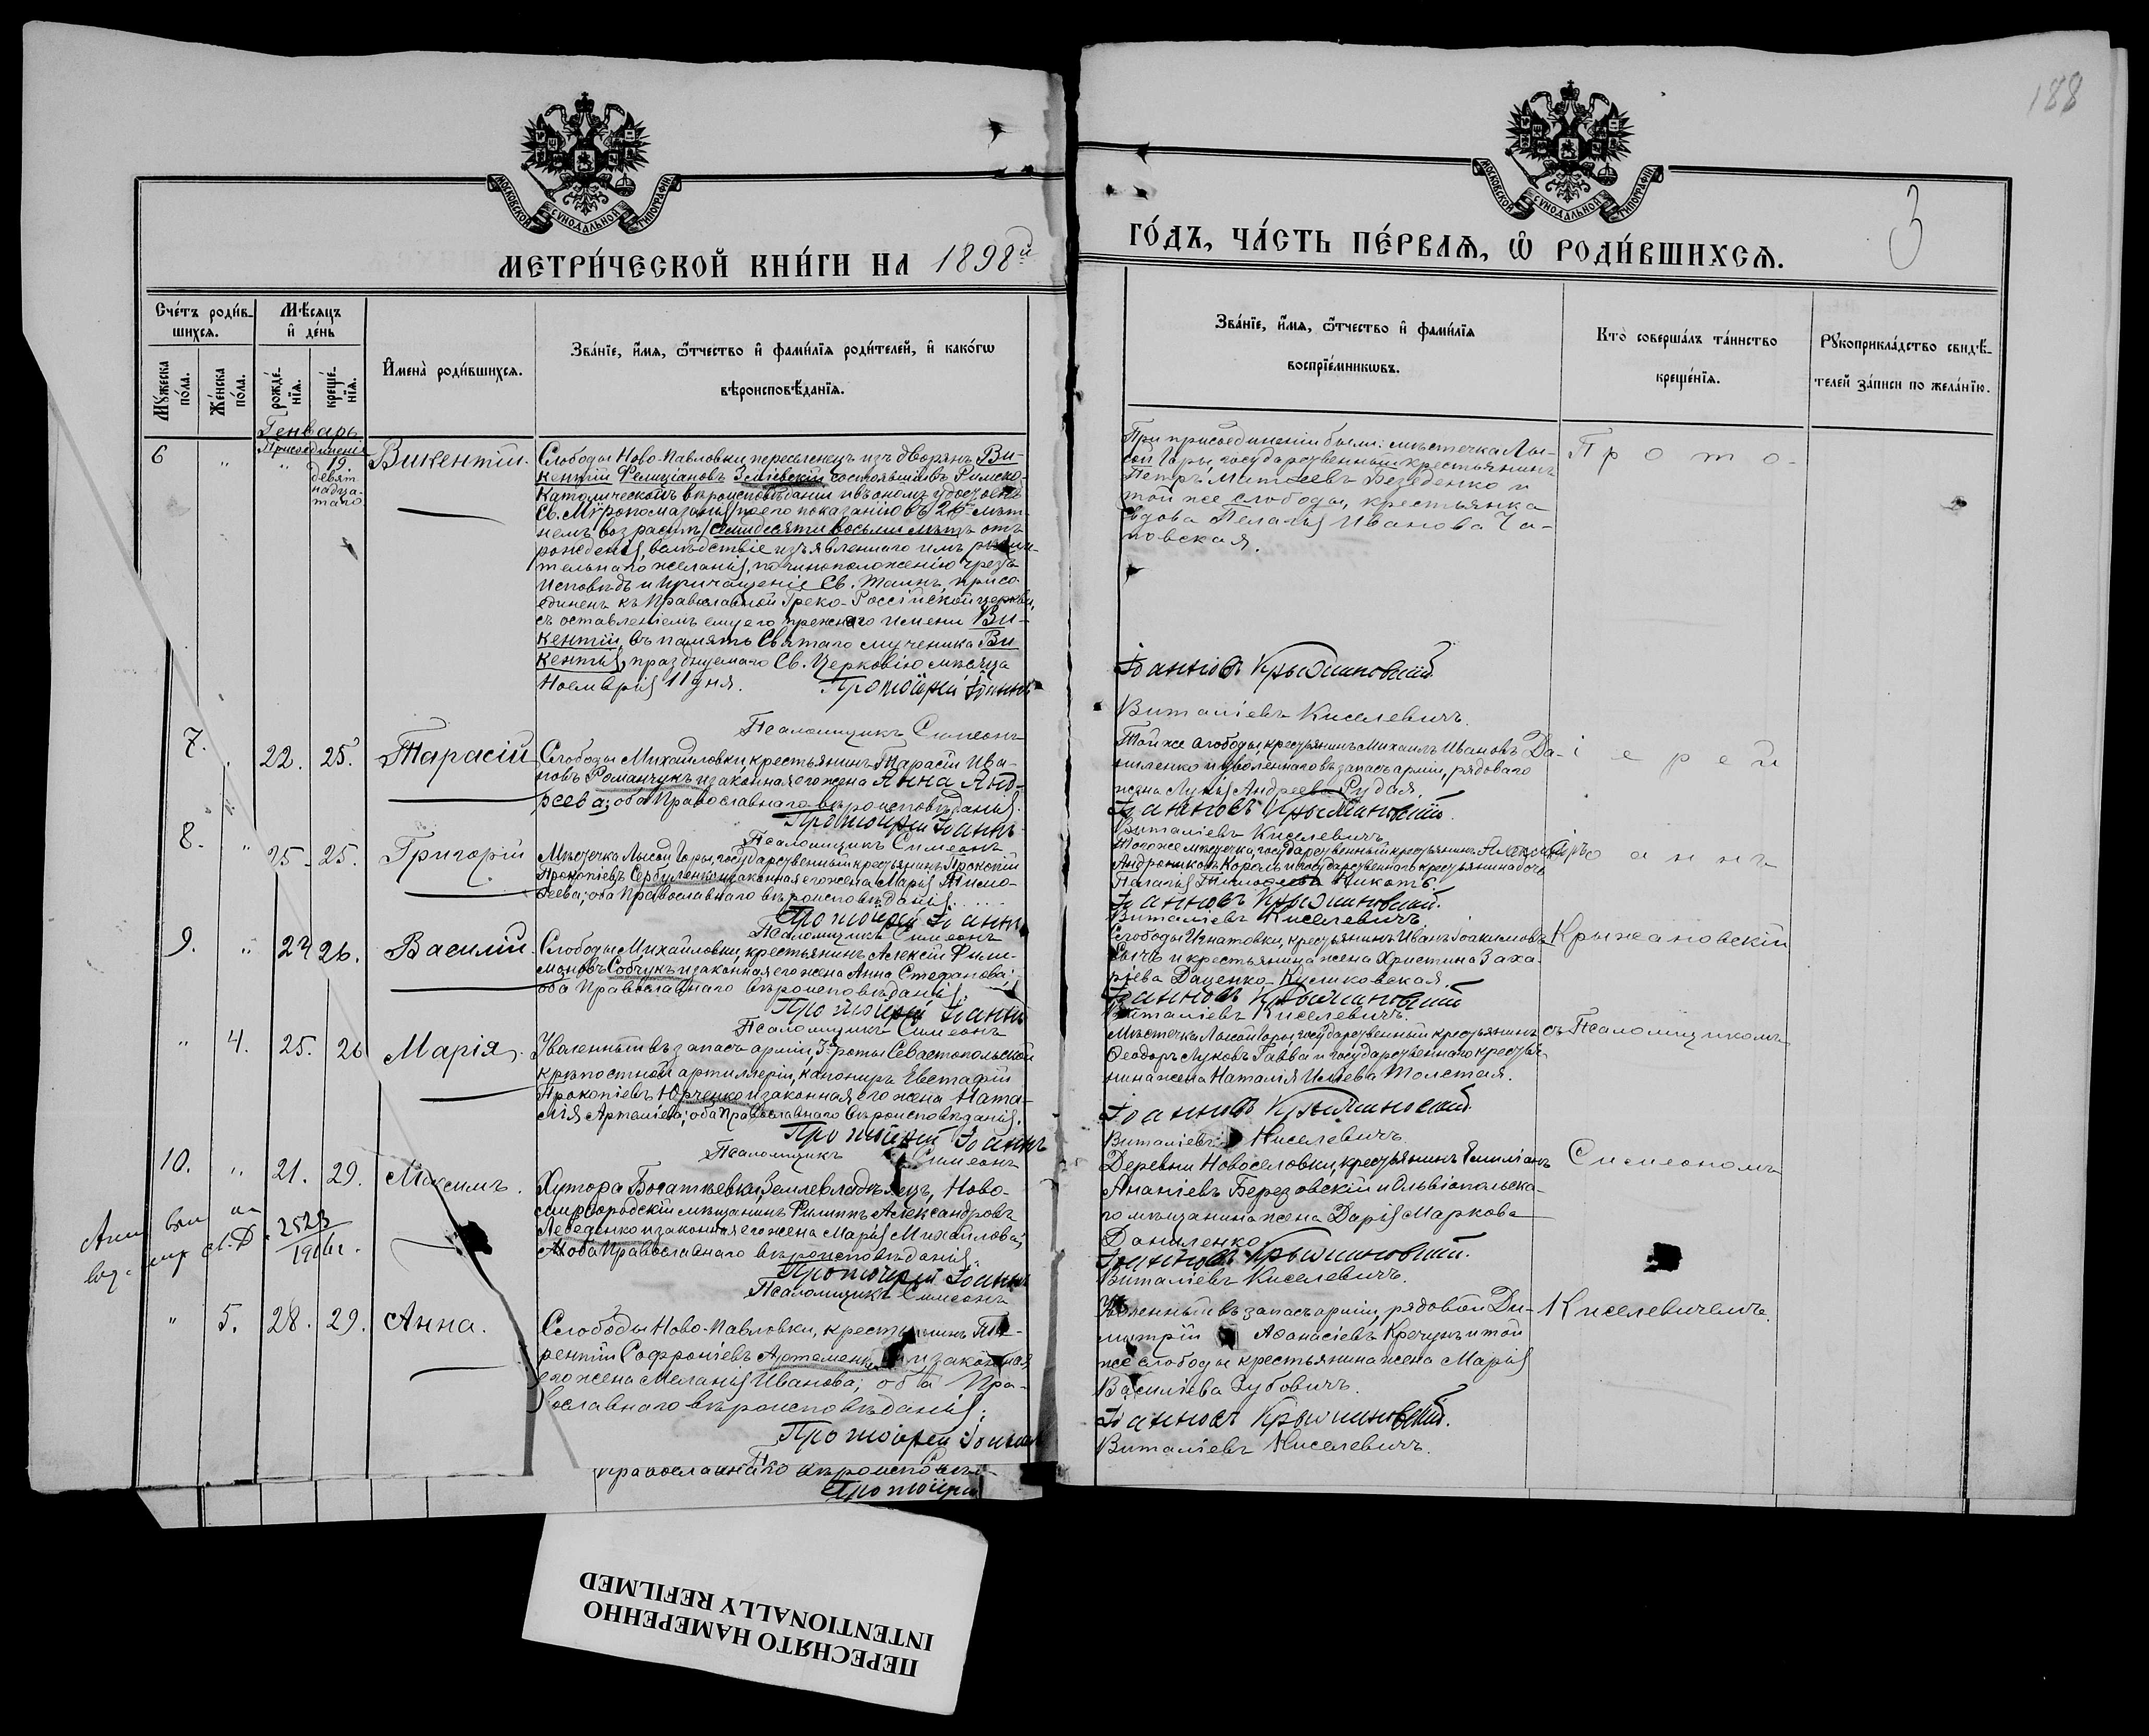 188
3
МОСКОВСКОЙ СѴНОДАЛЬНОЙ ТИПОГРАФІИ
МОСКОВСКОЙ СѴНОДАЛЬНОЙ ТИПОГРАФІИ
МЕТРИ́ЧЕСКОЙ КНИ́ГИ НА 1898й
ГО́ДЪ, ЧА́СТЬ ПЕ́РВАѦ, Ѿ РОДИ́ВШИХСѦ.
Сче́тъ роди́в-
шихсѧ.
Мѣ́сѧцъ
и҆ де́нь
Мꙋ́жеска
по́ла.
Же́нска
по́ла.
рожде́-
нїѧ.
креще́-
нїѧ.
И҆мена̀ роди́вшихсѧ.
Зва́нїе, и҆́мѧ, ѻ҆́тчество и҆ фами́лїѧ роди́телей, и҆ како́гѡ
вѣроисповѣ́данїѧ.
Зва́нїе, и҆́мѧ, ѻ҆́тчество и҆ фами́лїѧ
воспрїе́мникѡвъ.
Кто̀ соверша́лъ та́инство
креще́нїѧ.
Рꙋкоприкла́дство свидѣ́-
телей за́писи по жела́нїю.
Генварь
Присоединенія
6 " " 19.
девят-
надца-
таго
Викентій.
Слободы Ново-Павловки, переселенецъ изъ дворянъ Ви-
кентій Фелиціановъ Зелевскій состоявшій въ Римско-
Католическомъ вѣроисповѣданіи и въ ономъ удостоенъ
Св. Мѵропомазанія /по его показанію въ 20 лѣт-
немъ возрастѣ/ семидесяти восьми лѣтъ отъ
рожденія, вслѣдствіе изъявленнаго имъ рѣши-
тельнаго желанія, по чиноположенію чрезъ
Исповѣдь и Причащеніе Св. Таинъ, присо-
единенъ къ Православной Греко-Россійской церкви,
съ оставленіемъ ему его прежняго имени Ви-
кентій, въ память Святаго мученика Ви-
кентія, празднуемаго Св. Церковію мѣсяца
Ноемврія 11 дня. Протоіерей Іоаннъ
Псаломщикъ Симеонъ
При присоединеніи были: мѣстечка Лы-
сой Горы, государственный крестьянинъ
Петръ Матѳеевъ Безеденко и
той же слободы, крестьянка
вдова Пелагія Иванова Ча-
повская.
Іоанновъ Крыжановскій
Виталіевъ Киселевичъ.
Прото-
7. " 22. 25. Тарасій
Слободы Михайловки, крестьянинъ Тарасій Ива-
новъ Романчукъ и законная его жена Анна Анд-
реева; оба Православнаго вѣроисповѣданія.
Протоіерей Іоаннъ
Псаломщикъ Симеонъ
Той же слободы, крестьянинъ Михаилъ Ивановъ Да-
ниленко и уволеннаго въ запасъ арміи, рядоваго
жена Лукія Андреева Рудая.
Іоанновъ Крыжановскій.
Виталіевъ Киселевичъ
іерей
8. " 25. 25. Григорій
Мѣстечка Лысой Горы, государственный крестьянинъ Прокопій
Прокопіевъ Сербуленко и законная его жена Марія Тимо-
ѳеева; оба Православнаго вѣроисповѣданія.
Протоіерей Іоаннъ
Псаломщикъ Симеонъ
Тогоже мѣстечка, государственный крестьянинъ
Андрониковъ Король и государственнаго крестьянина дочь
Пелагія Тимоѳеева
Іоанновъ Крыжановскій.
Виталіевъ Киселевичъ
Іоаннъ
9. " 24 26. Василій
Слободы Михайловки, крестьянинъ Алексій Фили-
моновъ Собчукъ и законная его жена Анна Стефанова;
оба Православнаго вѣроисповѣданія.
Протоіерей Іоаннъ
Псаломщикъ Симеонъ
Слободы Игнатовки, крестьянинъ Иванъ Іоакимовъ
Сычъ и крестьянина жена Христина Заха-
ріева Даценко-Куликовская.
Іоанновъ Крыжановскій
Виталіевъ Киселевичъ.
Крыжановскій
" 4. 25. 26 Марія.
Уволенный въ запасъ арміи, 3й роты Севастопольской
крѣпостной артиллеріи, канониръ Евстафій
Прокопіевъ Юрченко и законная его жена Ната-
лія Артеміева; оба Православнаго вѣроисповѣданія.
Протоіерей Іоаннъ
Псаломщикъ Симеонъ
Мѣстечка Лысой Горы, государственный крестьянинъ
Ѳеодоръ Луковъ Гавва и государственнаго крестья-
нина жена Наталія Ильева Толстая.
Іоанновъ Крыжановскій.
Виталіевъ Киселевичъ.
съ Псаломщикомъ
10. " 21. 29. Максимъ.
Хутора Богатьевки, Землевладѣлецъ, Ново-
миргородскій мѣщанинъ Филиппъ Александровъ
Лебеденко и законная его жена Марія Михайлова;
оба Православнаго вѣроисповѣданія.
Протоіерей Іоаннъ
Псаломщикъ Симеонъ
Деревни Новоселовки, крестьянинъ Емиліанъ
Ананіевъ Березовскій и Ольвіопольска-
го мѣщанина жена Дарія Маркова
Даниленко.
Іоанновъ Крыжановскій.
Виталіевъ Киселевичъ.
Симеономъ
2523
1916г.
" 5. 28. 29. Анна.
Слободы Ново-Павловки, крестьянинъ Те-
рентій Софроніевъ Артеменко и законная
его жена Меланія Иванова; оба Пра-
вославнаго вѣроисповѣданія.
Протоіерей Іоаннъ
Уволенный въ запасъ арміи, рядовой Ди-
митрій Аѳанасіевъ Кречунъ и той
же слободы крестьянина жена Марія
Василіева Зубовичъ.
Іоанновъ Крыжановскій.
Виталіевъ Киселевичъ.
Киселевичемъ.
православнаго вѣроисповѣ-
Протоіерей
ПЕРЕСНЯТО НАМЕРЕННО
INTENTIONALLY REFILMED